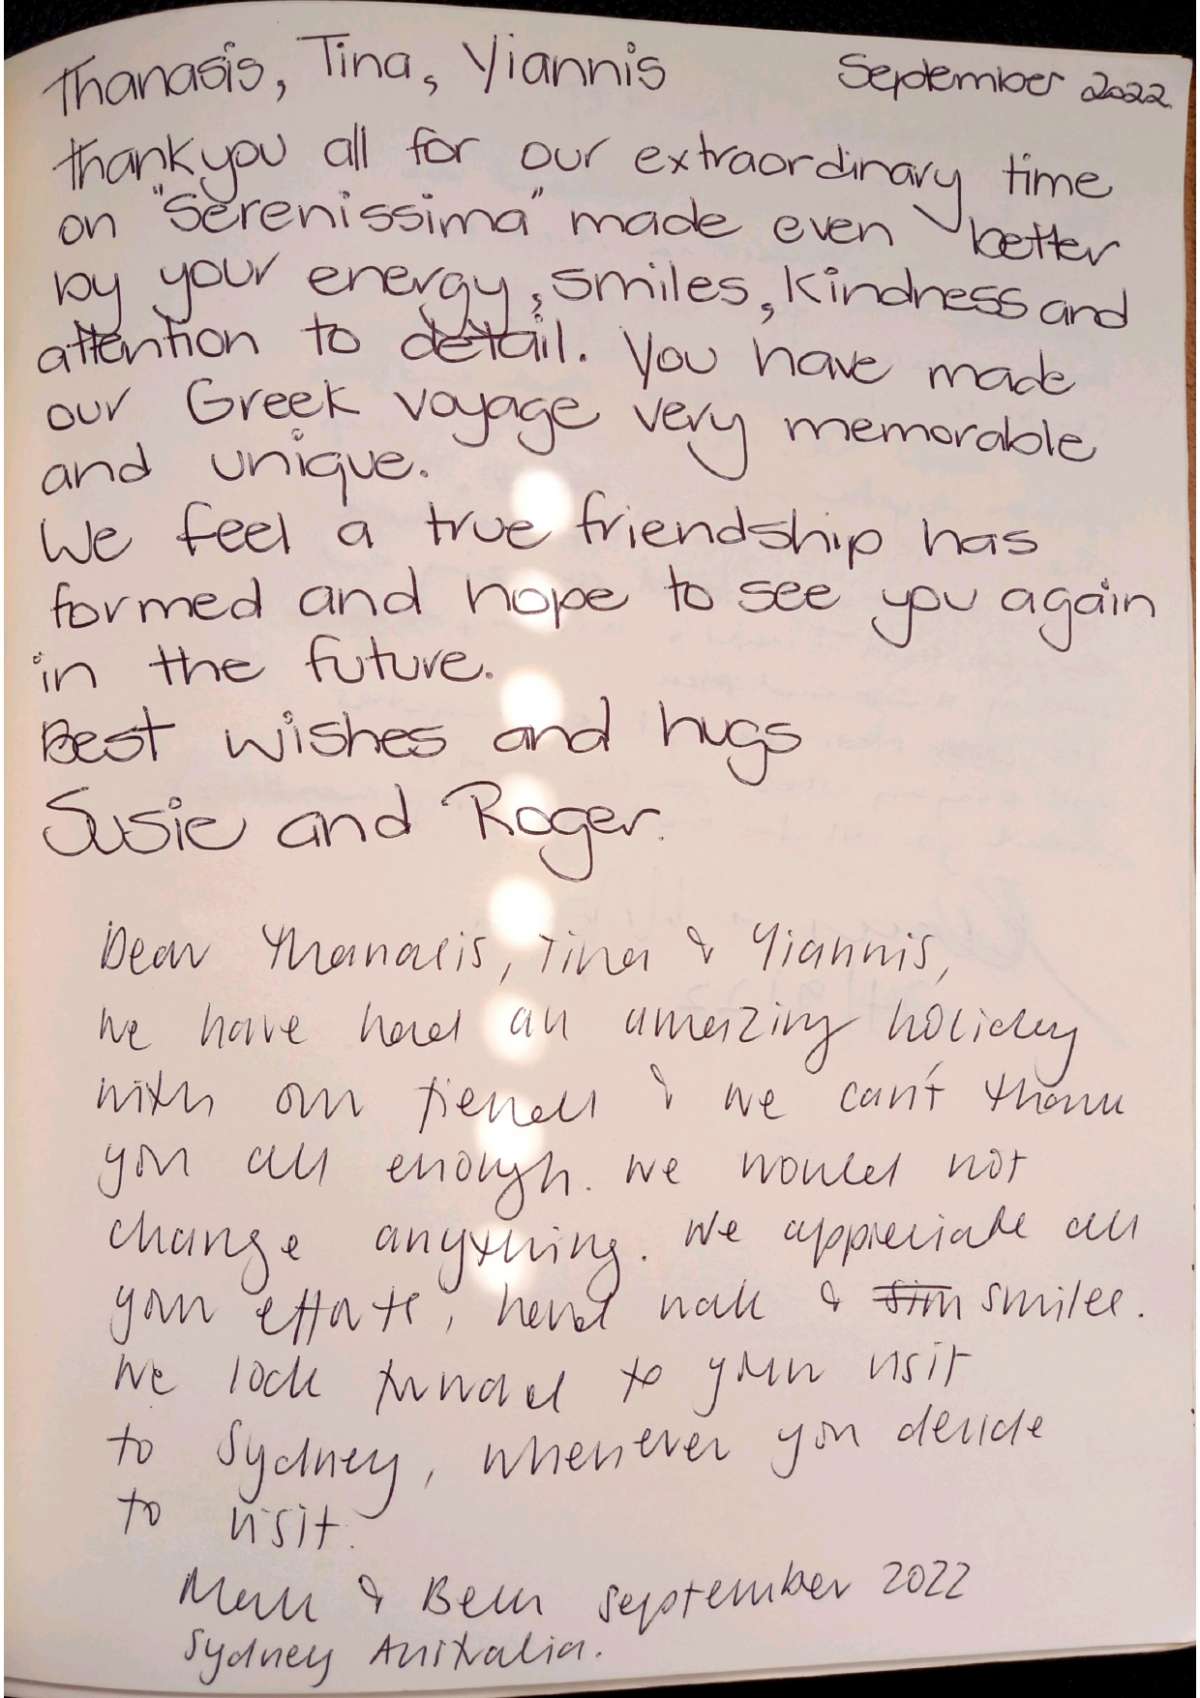 Thanasis, Tina, Yiannis September 2022.
thankyou all for our extraordinary time
on "Serenissima" made even better
by your energy, smiles, kindness and
attention to detail. You have made
our Greek voyage very memorable
and unique.
We feel a true friendship has
formed and hope to see you again
in the future.
Best wishes and hugs
Susie and Roger.
Dear Thanasis, Tina & Yiannis,
We have had an amazing holiday
with our friends & we can't thank
you all enough. We would not
change anything. We appreciate all
your efforts, hard work & sim smiles.
We look forward to your visit
to Sydney, whenever you decide
to visit.
& September 2022
Sydney Australia.